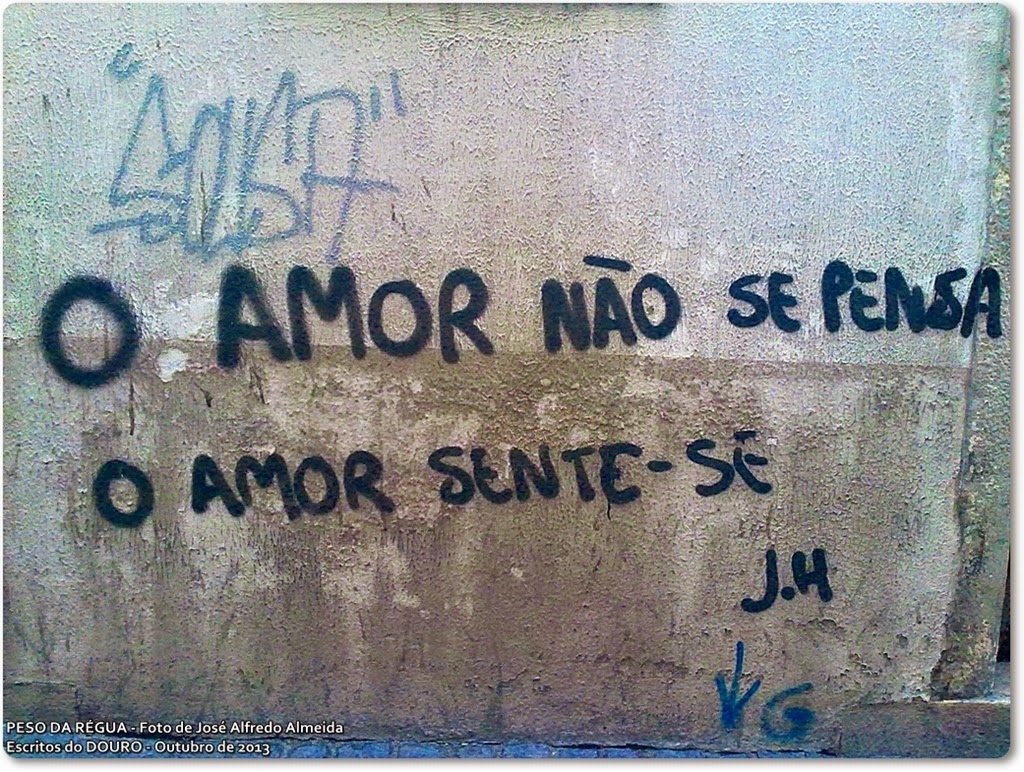 "SOUSA"
O AMOR NÃO SE PENSA
O AMOR SENTE-SE
J.H
G
PESO DA RÉGUA - Foto de José Alfredo Almeida
Escritos do DOURO - Outubro de 2013